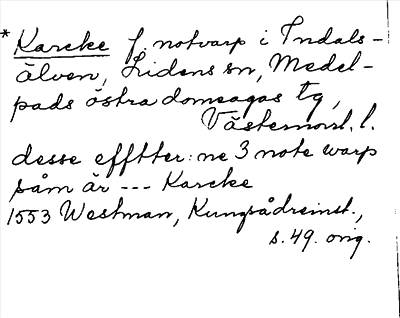 * Karcke f. notvarp i Indals-
älven, Lidens sn, Medel-
pads östra domsagas tg,
Västernorrl. l.
desse efftter:ne 3 note warp
såm är --- Karcke
1553 Westman, Kungsådreinst.,
s. 49. orig.